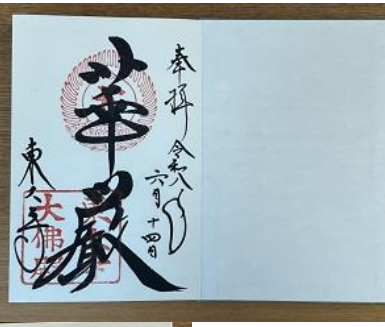 奉拝 令和八年
六月十四日
華厳
東大寺
大佛殿